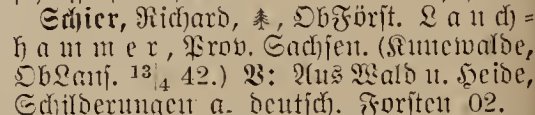 Schier, Richard, 🌲, ObFörst. Lauch=
hammer, Prov. Sachsen. (Kunewalde,
ObLaus. 13|4 42.) V: Aus Wald u. Heide,
Schilderungen a. deutsch. Forsten 02.